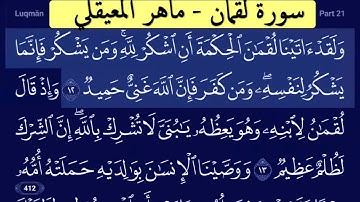 Luqmān
Part 21
سورة لقمان - ماهر المعيقلي
وَلَقَدْ ءَاتَيْنَا لُقْمَٰنَ ٱلْحِكْمَةَ أَنِ ٱشْكُرْ لِلَّهِ ۚ وَمَن يَشْكُرْ فَإِنَّمَا
يَشْكُرُ لِنَفْسِهِۦ ۖ وَمَن كَفَرَ فَإِنَّ ٱللَّهَ غَنِىٌّ حَمِيدٌ ١٢ وَإِذْ قَالَ
لُقْمَٰنُ لِٱبْنِهِۦ وَهُوَ يَعِظُهُۥ يَٰبُنَىَّ لَا تُشْرِكْ بِٱللَّهِ ۖ إِنَّ ٱلشِّرْكَ
لَظُلْمٌ عَظِيمٌ ١٣ وَوَصَّيْنَا ٱلْإِنسَٰنَ بِوَٰلِدَيْهِ حَمَلَتْهُ أُمُّهُۥ
412